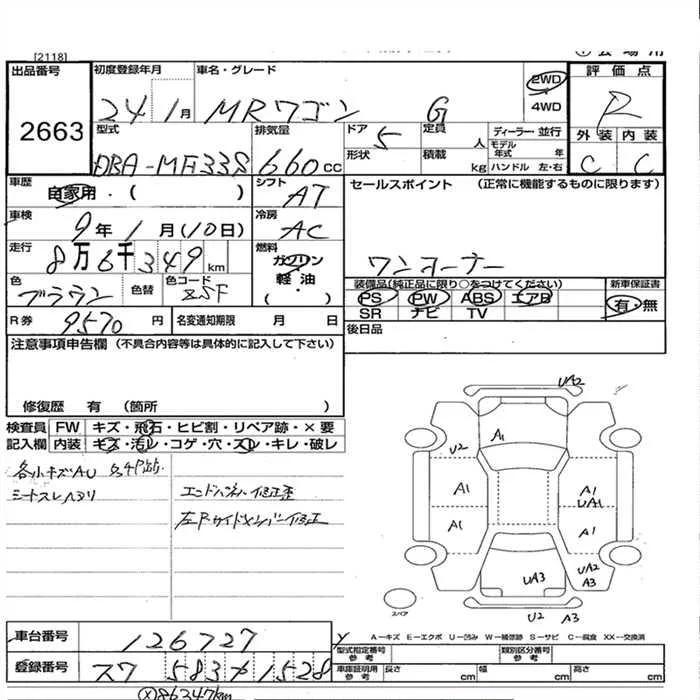 [2118]
出品番号 初度登録年月 車名・グレード 2WD 評価点
2663 24 1月 MRワゴン G 4WD R
型式 排気量 ドア 5 定員 人 ディーラー・並行 外装 内装
DBA-MF33S 660cc 形状 積載 kg モデル年式 年 ハンドル 左・右 C C
車歴 自家用・( ) シフト AT セールスポイント (正常に機能するものに限ります)
車検 9年1月(10日) 冷房 AC
走行 8万6千349km 燃料 ガソリン 軽油 (・) ワンオーナー
色 ブラウン 色替 色コード ZSF 装備品(純正品に限り○をつけてください) 新車保証書
PS PW ABS エアB 有・無
SR ナビ TV
R券 9570円 名変通知期限 月 日 後日品
注意事項申告欄(不具合内容等は具体的に記入して下さい)
修復歴 有 (箇所 )
検査員 FW キズ・飛石・ヒビ割・リペア跡・×要
記入欄 内装 キズ・汚レ・コゲ・穴・スレ・キレ・破レ
各小キズAU
シートスレヘタリ エンドパネル修正歪
左Rサイドメンバー修正
UA2
A1
U2
A1 A1
UA1
A1 A1
UA2
A3
UA3
スペア U2 A3
A-キズ E-エクボ U-凹み W-補修跡 S-サビ C-腐食 XX-交換済
車台番号 126727 型式指定番号 参考 類別区分番号 参考
登録番号 スワ 583 1528 車庫証明用 参考 長さ cm 幅 cm 高さ cm
86347km